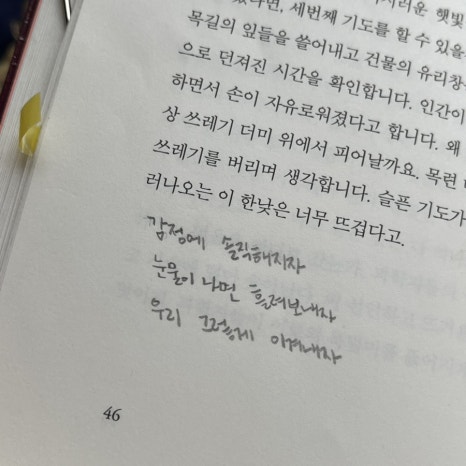 세번째 기도를 할 수 있을
목길의 잎들을 쓸어내고 건물의 유리창
으로 던져진 시간을 확인합니다. 인간이
하면서 손이 자유로워졌다고 합니다. 왜
상 쓰레기 더미 위에서 피어날까요. 목련
쓰레기를 버리며 생각합니다. 슬픈 기도가
러나오는 이 한낮은 너무 뜨겁다고.
감정에 솔직해지자
눈물이 나면 흘려보내자
우리 그렇게 이겨내자
46